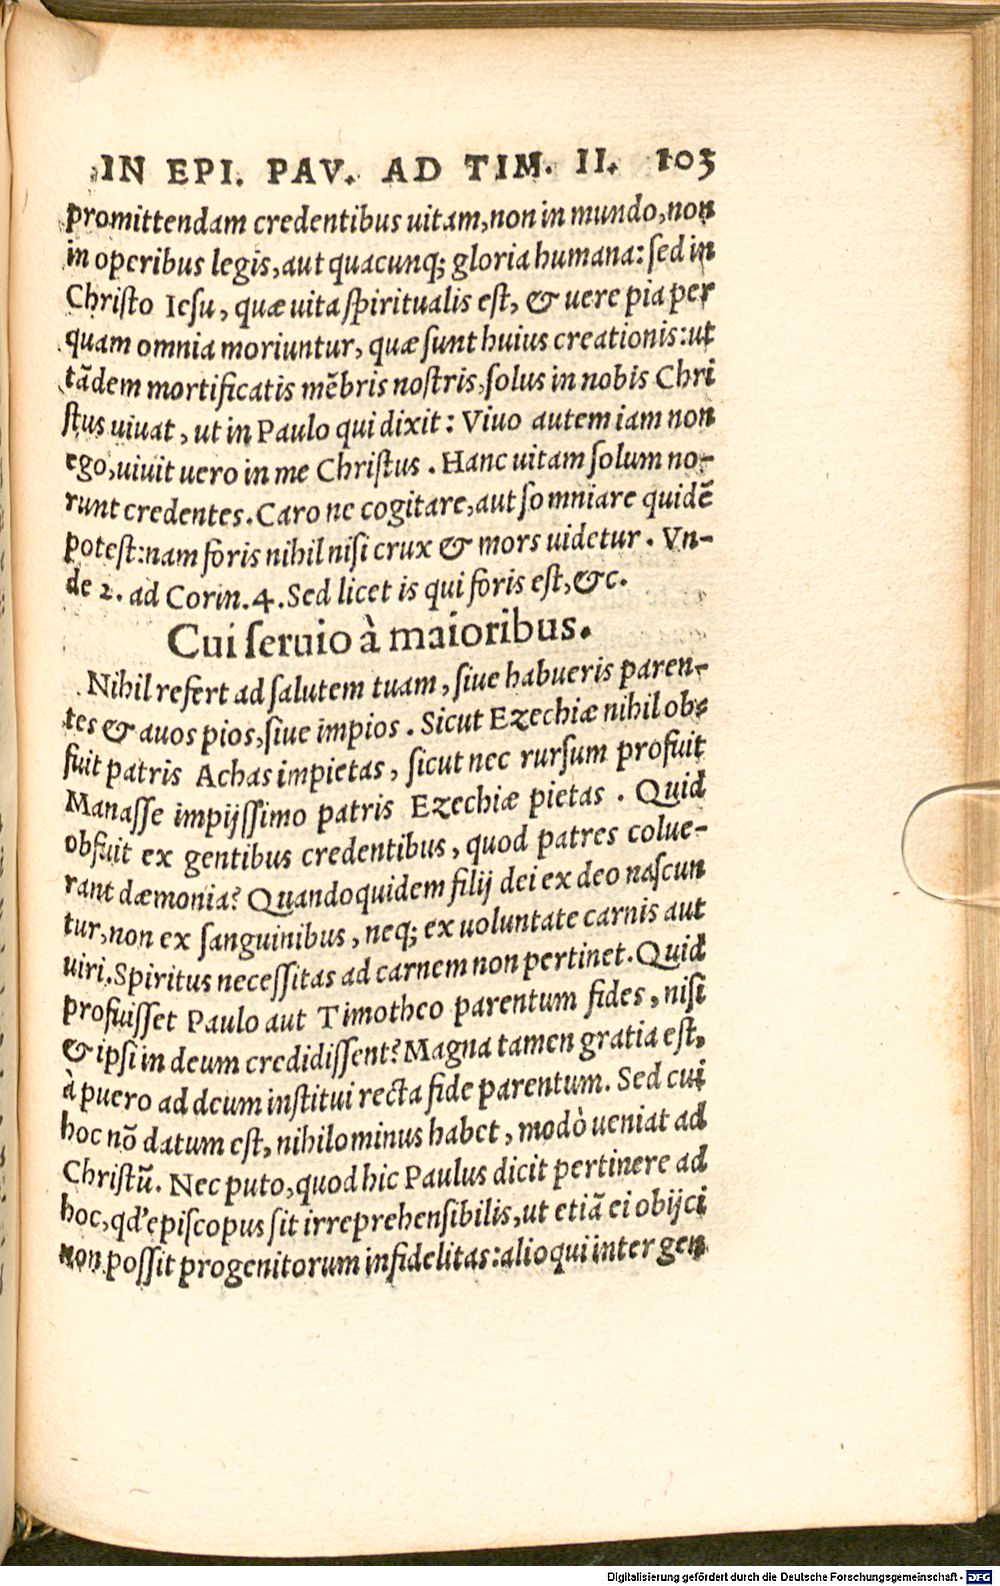 IN EPI. PAV. AD TIM. II. 103
promittendam credentibus uitam, non in mundo, non
in operibus legis, aut quacunq; gloria humana: sed in
Christo Iesu, quæ uita spiritualis est, & uere pia per
quam omnia moriuntur, quæ sunt huius creationis: ut
tādem mortificatis mēbris nostris, solus in nobis Chri
stus uiuat, ut in Paulo qui dixit: Viuo autem iam non
ego, uiuit uero in me Christus. Hanc uitam solum no-
runt credentes. Caro ne cogitare, aut somniare quidē
potest: nam foris nihil nisi crux & mors uidetur. Vn-
de 2. ad Corin. 4. Sed licet is qui foris est, &c.
Cui seruio à maioribus.
Nihil refert ad salutem tuam, siue habueris paren-
tes & auos pios, siue impios. Sicut Ezechiæ nihil ob-
fuit patris Achas impietas, sicut nec rursum profuit
Manasse impijssimo patris Ezechiæ pietas. Quid
obfuit ex gentibus credentibus, quod patres colue-
rant dæmonia? Quandoquidem filij dei ex deo nascun
tur, non ex sanguinibus, neq; ex uoluntate carnis aut
uiri. Spiritus necessitas ad carnem non pertinet. Quid
profuisset Paulo aut Timotheo parentum fides, nisi
& ipsi in deum credidissent? Magna tamen gratia est,
à puero ad deum institui recta fide parentum. Sed cui
hoc nō datum est, nihilominus habet, modò ueniat ad
Christū. Nec puto, quod hic Paulus dicit pertinere ad
hoc, qd' episcopus sit irreprehensibilis, ut etiā ei obijci
non possit progenitorum infidelitas: alioqui inter gen
Digitalisierung gefördert durch die Deutsche Forschungsgemeinschaft - DFG